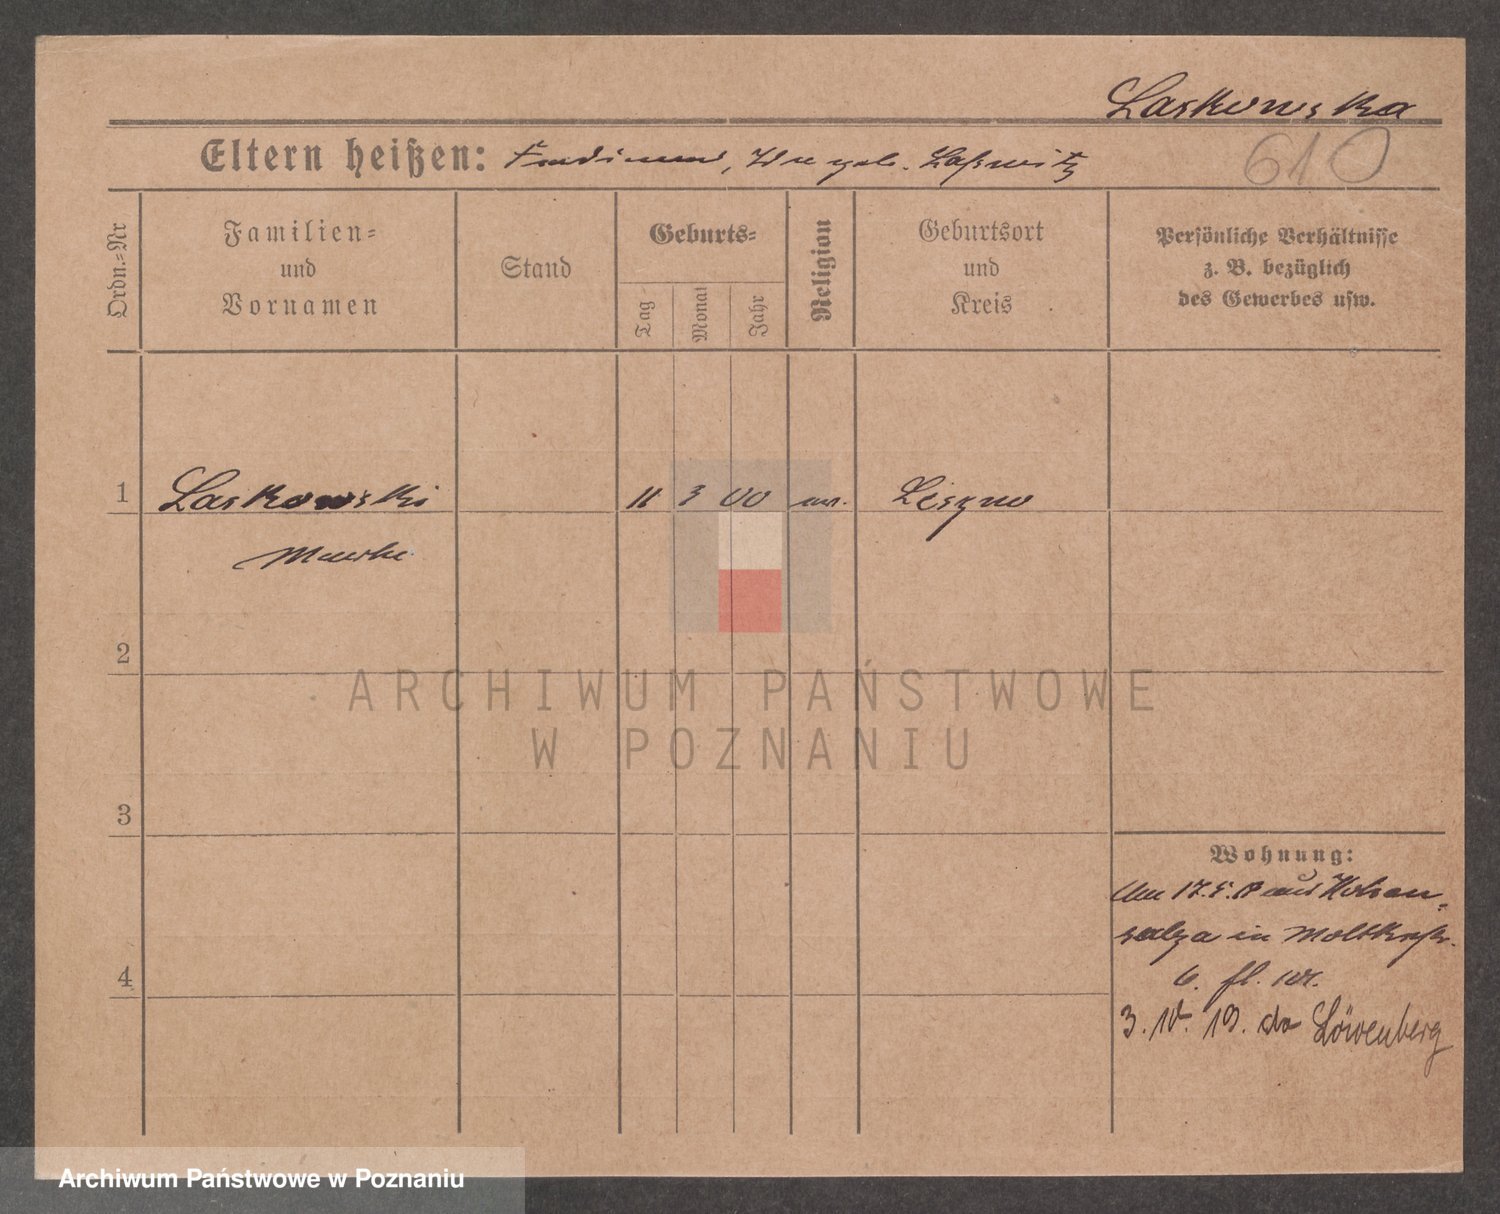 Laskowska
Eltern heißen: Ferdinand, geb. Laßwitz
610
Ordn.-Nr
Familien-
und
Vornamen
Stand
Geburts-
Tag
Monat
Jahr
Religion
Geburtsort
und
Kreis
Persönliche Verhältnisse
z. B. bezüglich
des Gewerbes usw.
1 Laskowski 11 3 00 Leszno
2
ARCHIWUM PAŃSTWOWE
W POZNANIU
3
Wohnung:
17.5.18 aus Hohen-
salza in Moltkestr.
4
6.
3. 10. 19. do Löwenberg
Archiwum Państwowe w Poznaniu